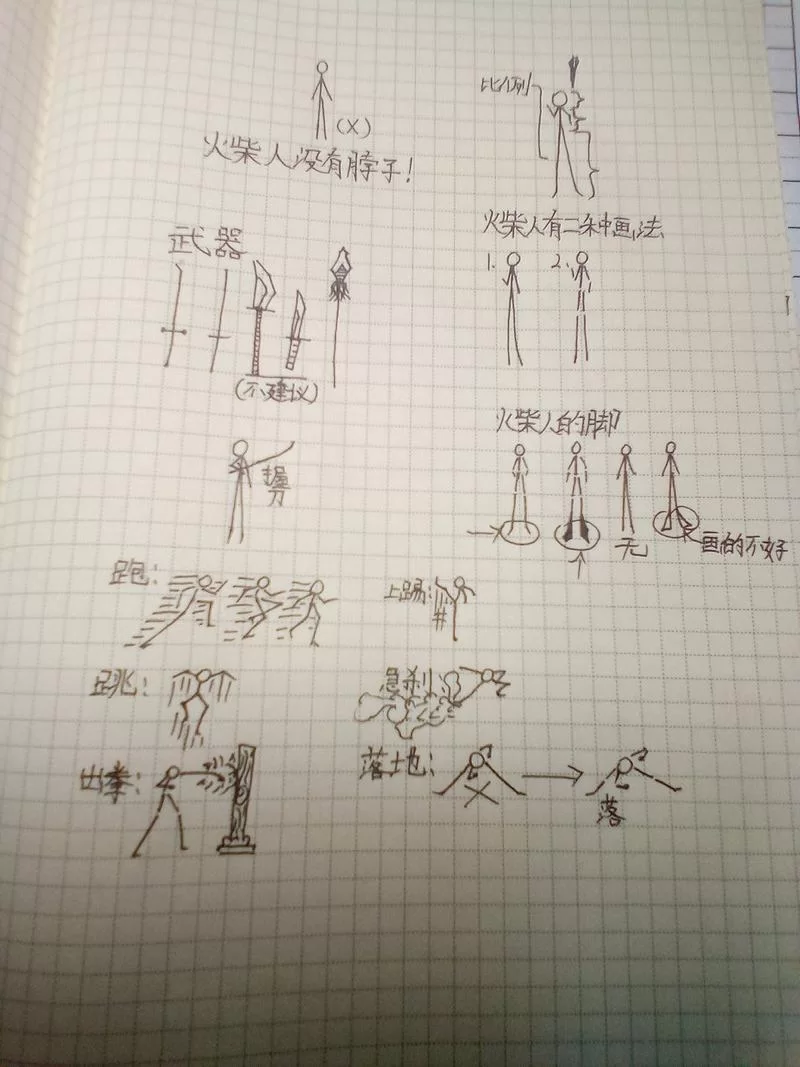 (X)
火柴人没有脖子!
比例
武器
(不建议)
火柴人有二种画法
1.
2.
握刀
火柴人的脚
无
画的不好
跑:
上踢:
跳:
急刹
出拳:
落地:
落